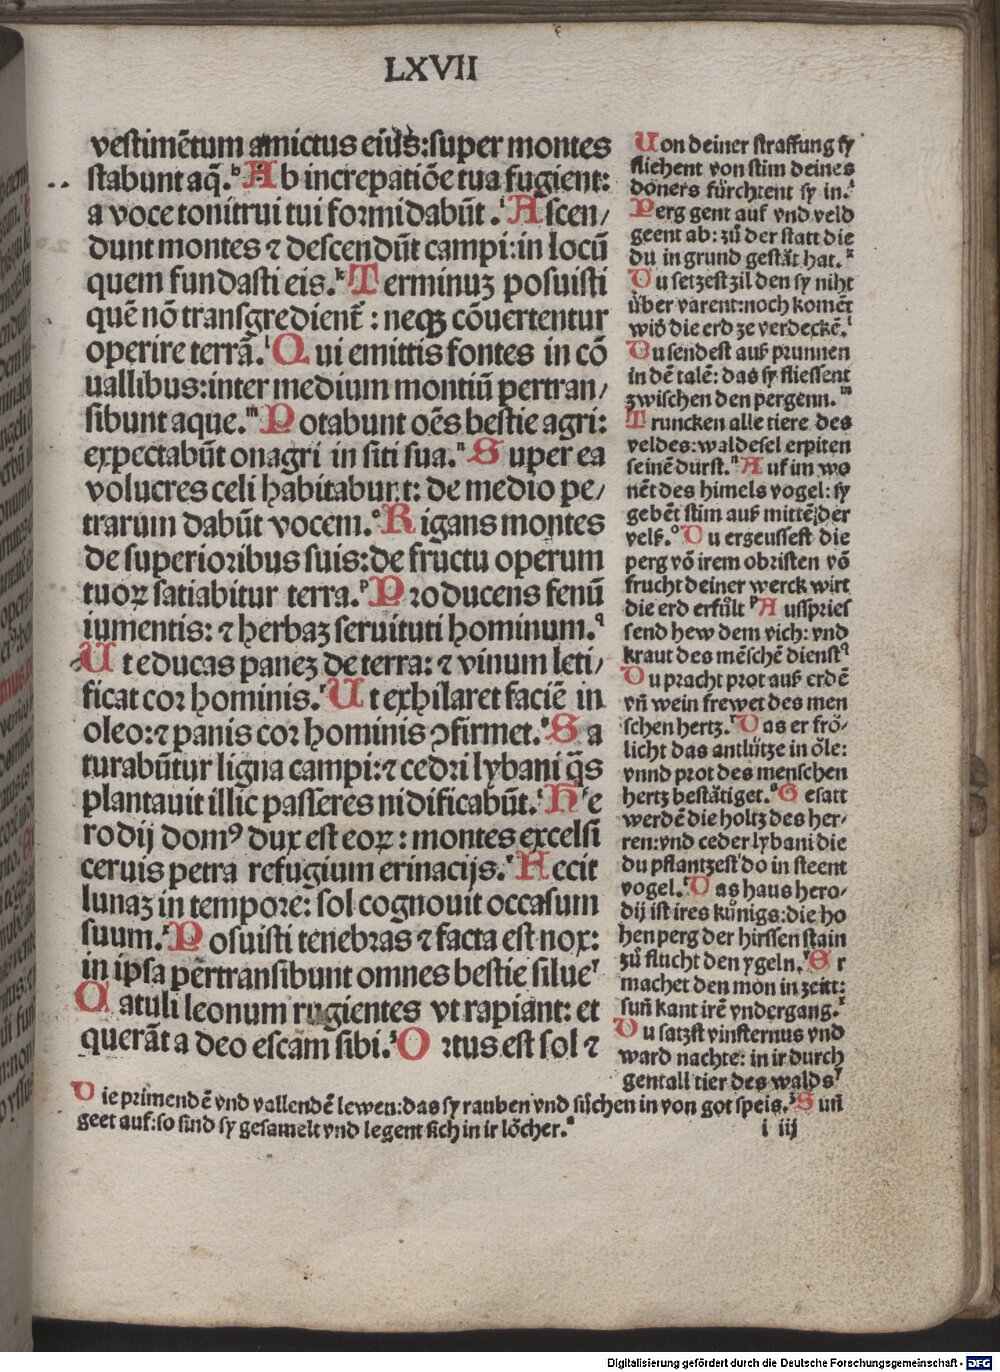 LXVII
vestimētum amictus eius:super montes
stabunt aq̄.ʰ Ab increpatiōe tua fugient:
a voce tonitrui tui formidabūt.ⁱ Ascen/
dunt montes ⁊ descendūt campi:in locū
quem fundasti eis.ᵏ Terminuꝫ posuisti
quē nō transgredient̄ : neqꝫ cōuertentur
operire terrā.ˡ Qui emittis fontes in cō
uallibus:inter medium montiū pertran/
sibunt aque.ᵐ Potabunt oēs bestie agri:
expectabūt onagri in siti sua.ⁿ Super ea
volucres celi habitabunt: de medio pe/
trarum dabūt vocem.ᵒ Rigans montes
de superioribus suis:de fructu operum
tuoꝝ satiabitur terra.ᵖ Producens fenū
iumentis: ⁊ herbaꝫ seruituti hominum.q
Ut educas paneꝫ de terra: ⁊ vinum leti/
ficat cor hominis.ʳ Ut exhilaret faciē in
oleo:⁊ panis cor hominis ꝯfirmet.ˢ Sa
turabūtur ligna campi:⁊ cedri lybani q̄s
plantauit illic passeres nidificabūt.ᵗ He
rodij domꝰ dux est eoꝝ : montes excelsi
ceruis petra refugium erinacijs.ᵛ Fecit
lunaꝫ in tempore: sol cognouit occasum
suum.ˣ Posuisti tenebras ⁊ facta est nox:
in ipsa pertransibunt omnes bestie silueʸ
Catuli leonum rugientes vt rapiant: et
querāt a deo escam sibi.ᶻ Ortus est sol ⁊
Uon deiner straffung sy
fliehent von stim deines
doners fürchtent sy in.ⁱ
Perg gent auf vnd veld
geent ab: zů der statt die
du in grund gestāt hat.ᵏ
Du setzest zil den sy niht
über varent:noch komēt
wid̄ die erd ze verdeckē.ˡ
Du sendest auß prunnen
in dē talē: das sy fliessent
zwischen den pergenn.ᵐ
Truncken alle tiere des
veldes:waldesel erpiten
seinē durst.ⁿ Auf im wo
nēt des himels vogel: sy
gebēt stim auß mittē der
velß.ᵒ Du ergeussest die
perg vō irem obristen vō
frucht deiner werck wirt
die erd erfült ᵖ Ausspries
send hew dem vich: vnd
kraut des mēschē dienstq
Du pracht prot auß erdē
vn̄ wein frewet des men
schen hertz.ʳ Das er frö-
licht das antlütze in öle:
vnnd prot des menschen
hertz bestätiget.ˢ Gesatt
werdē die holtz des her-
ren:vnd ceder lybani die
du pflantzest do in steent
vogel.ᵗ Das haus hero-
dij ist ires künigs:die ho
hen perg der hirssen stain
zů flucht den ygeln.ᵛ Er
machet den mon in zeitt:
sun̄ kant irē vndergang.ˣ
Du satzst vinsternus vnd
ward nachte: in ir durch
gent all tier des waldsʸ
Die primendē vnd vallendē lewen:das sy rauben vnd sůchen in von got speis.ᶻ Sun̄
geet auf:so sind sy gesamelt vnd legent sich in ir löcher.ᵃ
i iij
Digitalisierung gefördert durch die Deutsche Forschungsgemeinschaft - DFG